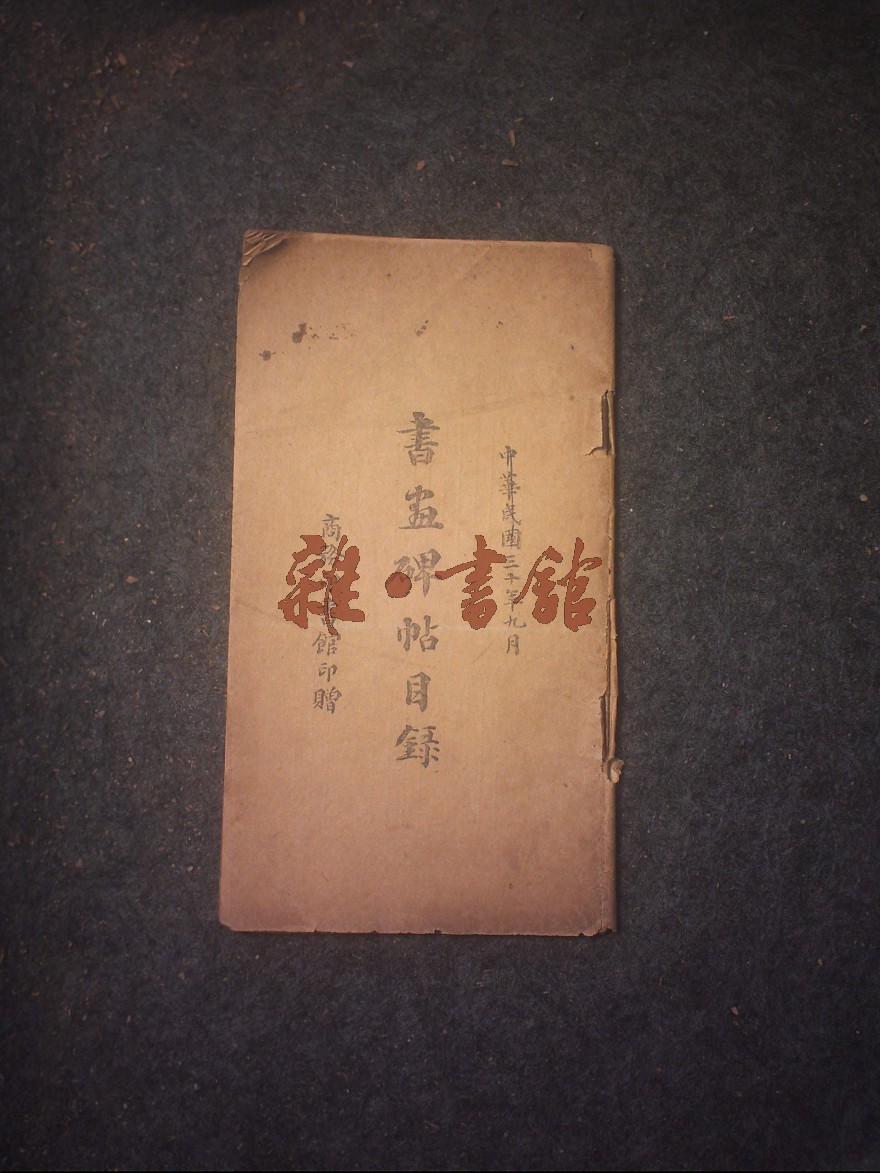 中華民國三十年九月
書畫碑帖目錄
商務印書館印贈
雜·書館